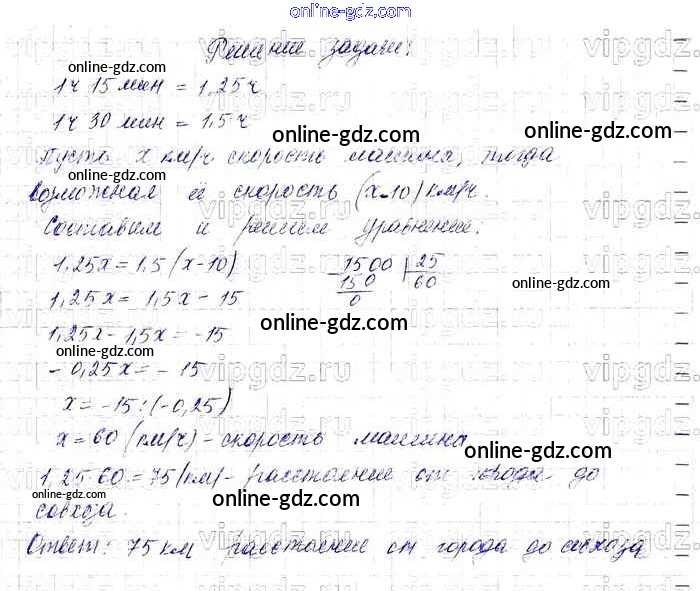 online-gdz.com
Решение задачи:
online-gdz.com
1ч 15 мин = 1,25ч
vipgdz.ru
1ч 30 мин = 1,5ч
online-gdz.com
Пусть x км/ч скорость машина, тогда
возможная её скорость (x-10) км/ч.
online-gdz.com
Составим и решим уравнение:
1,25x = 1,5 (x-10)
1500 | 25
150 60
0
online-gdz.com
1,25x = 1,5x - 15
online-gdz.com
1,25x - 1,5x = -15
online-gdz.com
- 0,25x = - 15
vipgdz.ru
x = -15 : (-0,25)
x = 60 (км/ч) - скорость машина
online-gdz.com
1,25 60 = 75 (км) - расстояние от города до
online-gdz.com
совхоза.
online-gdz.com
Ответ: 75 км расстояние от города до совхоза